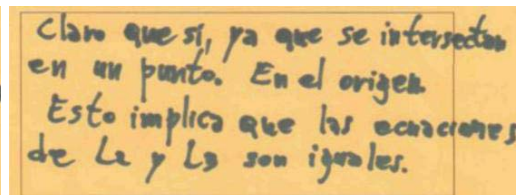 Claro que sí, ya que se intersectan
en un punto. En el origen.
Esto implica que las ecuaciones
de L2 y L3 son iguales.